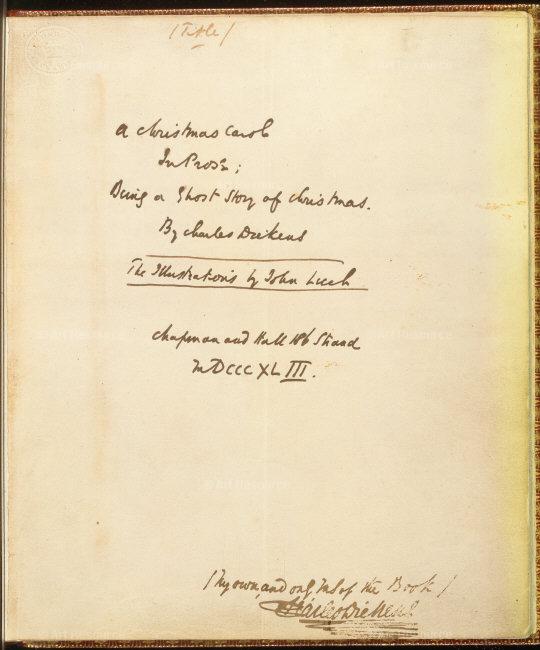 /Title/
A Christmas Carol
In Prose;
Being a Ghost Story of Christmas.
By Charles Dickens
The Illustrations by John Leech
Chapman and Hall 186 Strand
MDCCCXLIII.
/My own, and only MS of the Book/
Charles Dickens
© Art Resource